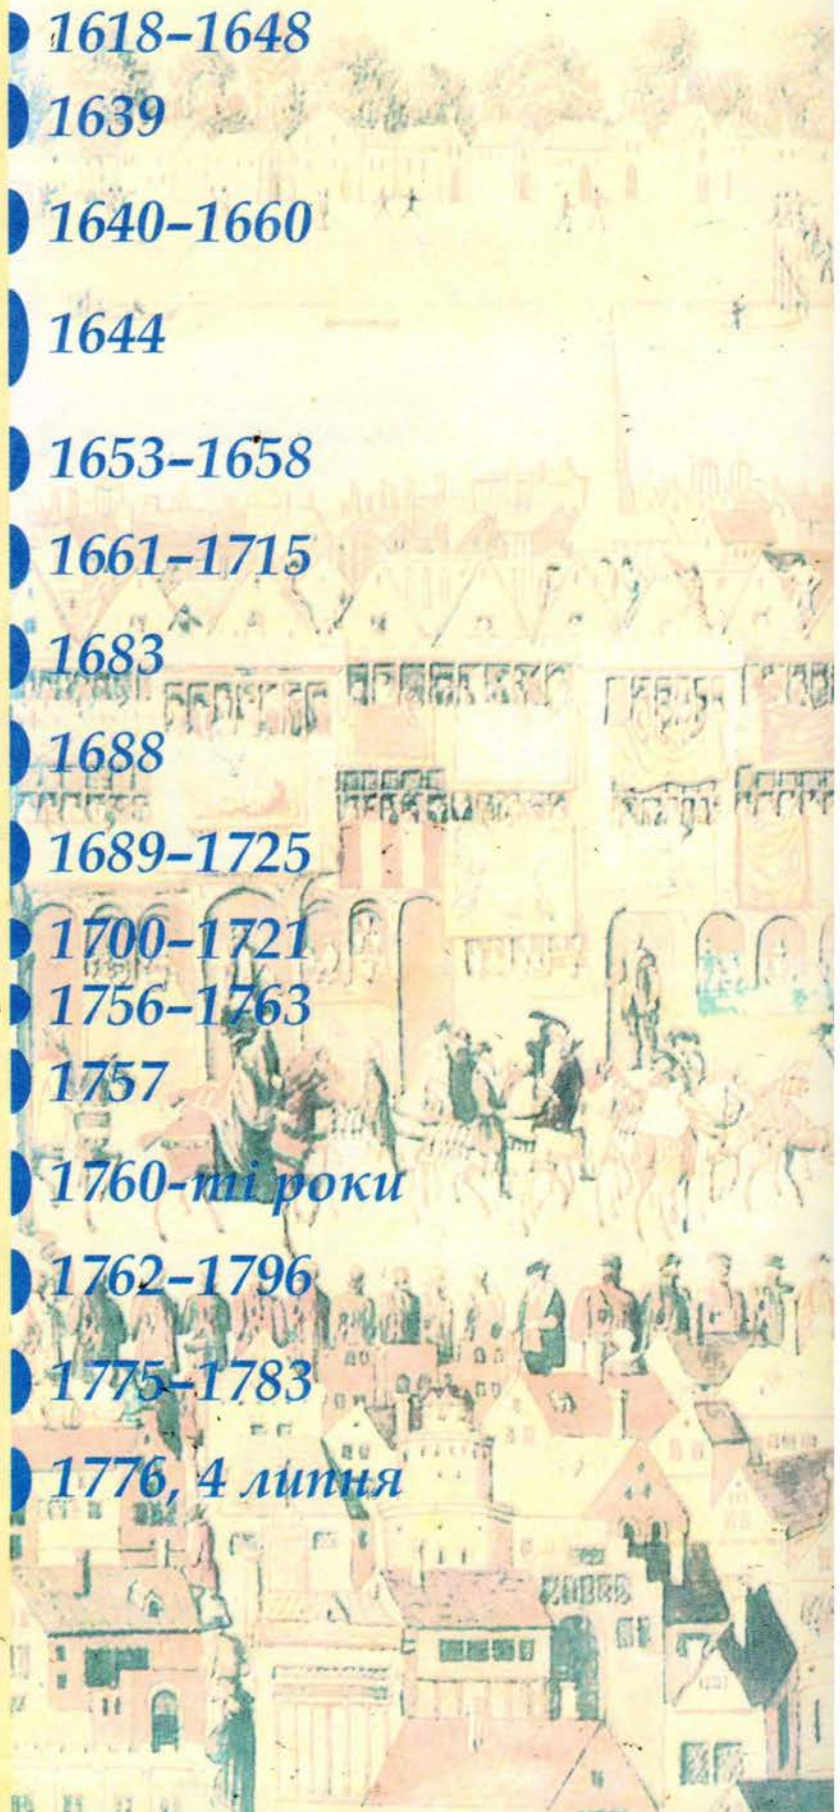 1618–1648
1639
1640–1660
1644
1653–1658
1661–1715
1683
1688
1689–1725
1700–1721
1756–1763
1757
1760-ті роки
1762–1796
1775–1783
1776, 4 липня